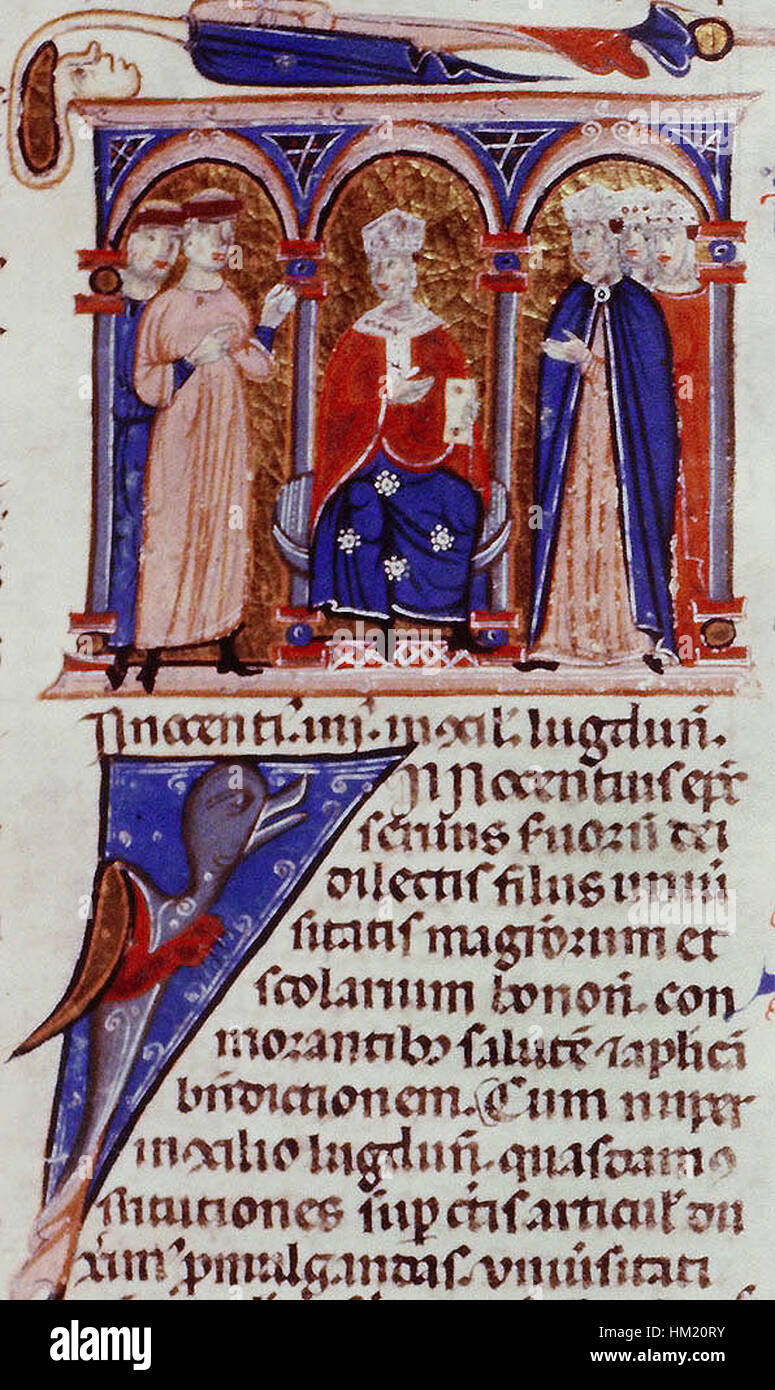 Innocenti. iiij. in 9cil. lugdun.
INNocentius ep̅s
seruus s̅uoru̅ dei
dilectis filiis uniu̅
sitatis magr̅orum et
scolarium bonon̅. con
morantib; salute̅ ⁊ aplica̅
bn̅dictionem. Cum nuper
in 9cilio lugdun̅. quasdam 9
stitutiones sup̅ c̅tis articul̅ du
xim9 p̅mulgandas. uniu̅sitati
alamy
Image ID: HM20RY
www.alamy.com